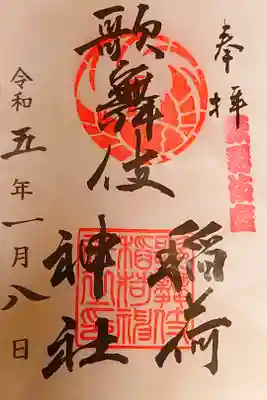 奉拝
歌舞伎
稲荷
神社
令和五年一月八日